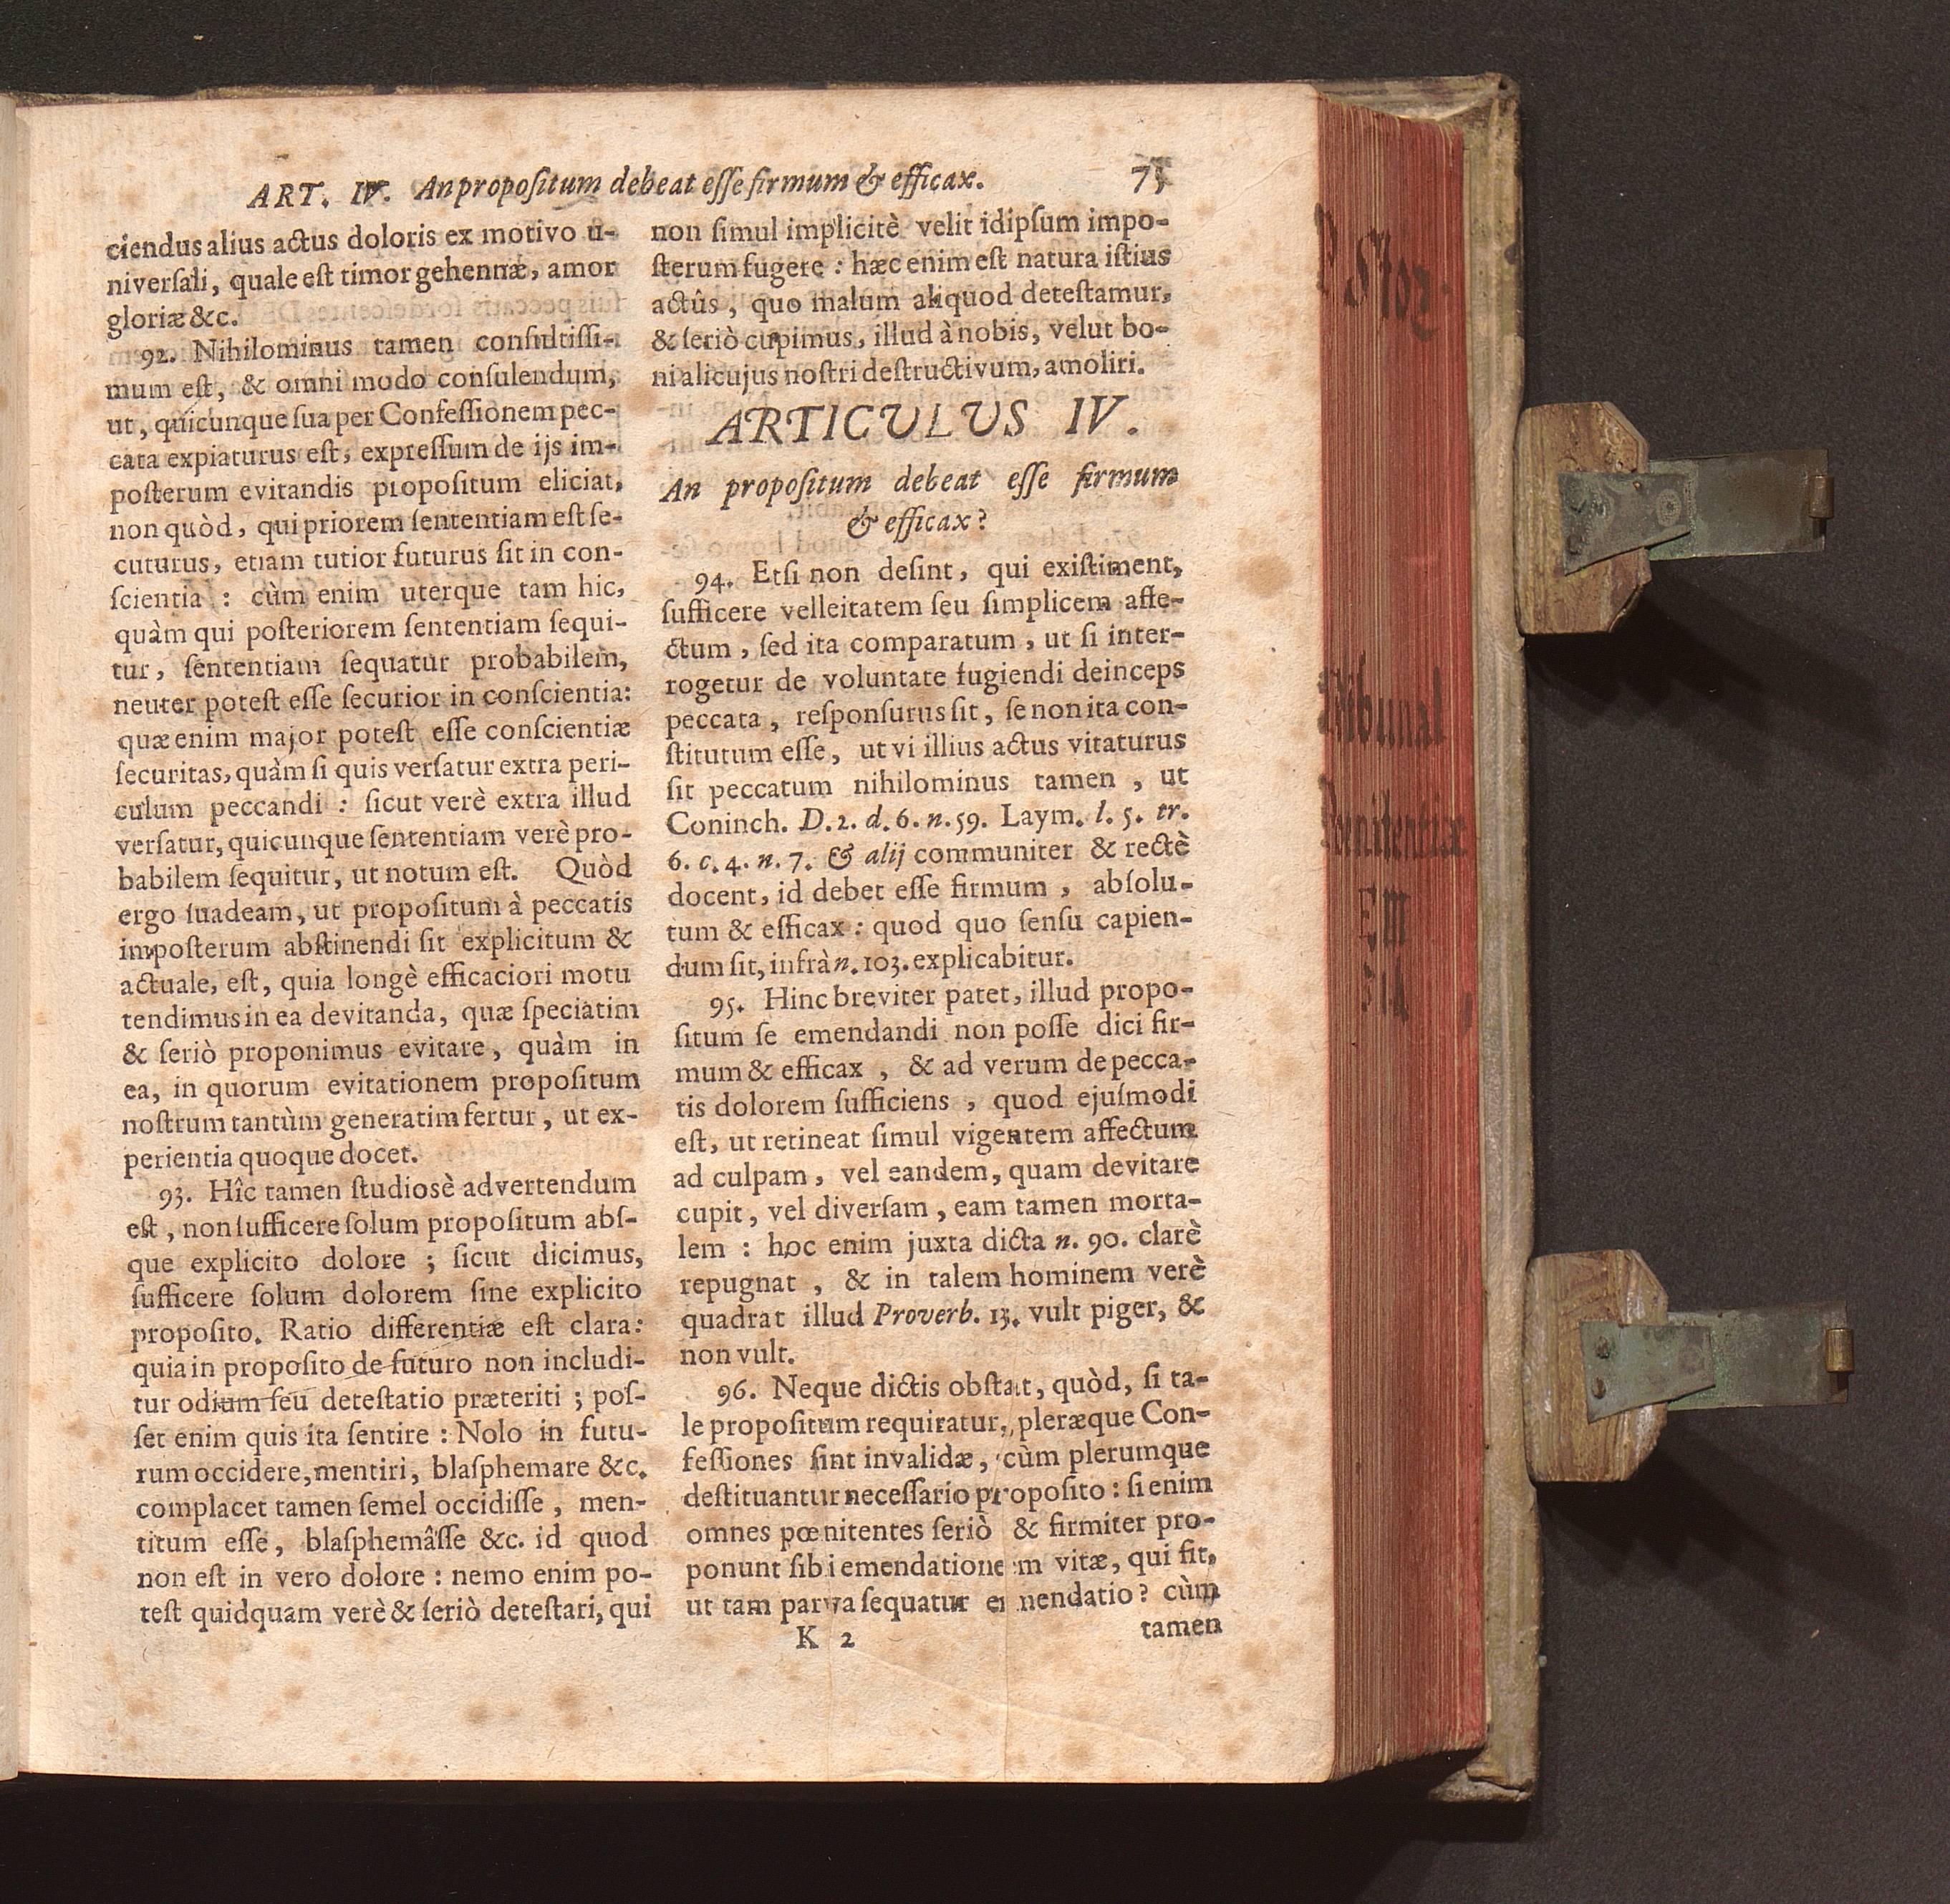 ART. IV. An propoſitum debeat eſſe firmum & efficax. 75
ciendus alius actus doloris ex motivo u-
niverſali, quale eſt timor gehennæ, amor
gloriæ &c.
92. Nihilominus tamen conſultiſſi-
mum eſt, & omni modo conſulendum,
ut, quicunque ſua per Confeſſionem pec-
cata expiaturus eſt, expreſſum de ijs im-
poſterum evitandis propoſitum eliciat,
non quòd, qui priorem ſententiam eſt ſe-
cuturus, etiam tutior futurus ſit in con-
ſcientia : cùm enim uterque tam hic,
quàm qui poſteriorem ſententiam ſequi-
tur, ſententiam ſequatur probabilem,
neuter poteſt eſſe ſecurior in conſcientia:
quæ enim major poteſt eſſe conſcientiæ
ſecuritas, quàm ſi quis verſatur extra peri-
culum peccandi : ſicut verè extra illud
verſatur, quicunque ſententiam verè pro-
babilem ſequitur, ut notum eſt. Quòd
ergo ſuadeam, ut propoſitum à peccatis
impoſterum abſtinendi ſit explicitum &
actuale, eſt, quia longè efficaciori motu
tendimus in ea devitanda, quæ ſpeciatim
& ſeriò proponimus evitare, quàm in
ea, in quorum evitationem propoſitum
noſtrum tantùm generatim fertur, ut ex-
perientia quoque docet.
93. Hîc tamen ſtudiosè advertendum
eſt, non ſufficere ſolum propoſitum abſ-
que explicito dolore ; ſicut dicimus,
ſufficere ſolum dolorem ſine explicito
propoſito. Ratio differentiæ eſt clara:
quia in propoſito de futuro non includi-
tur odium ſeu deteſtatio præteriti ; poſ-
ſet enim quis ita ſentire : Nolo in futu-
rum occidere, mentiri, blaſphemare &c.
complacet tamen ſemel occidiſſe, men-
titum eſſe, blaſphemâſſe &c. id quod
non eſt in vero dolore : nemo enim po-
teſt quidquam verè & ſeriò deteſtari, qui
non ſimul implicitè velit idipſum impo-
ſterum fugere : hæc enim eſt natura iſtius
actûs, quo malum aliquod deteſtamur,
& ſeriò cupimus, illud à nobis, velut bo-
ni alicujus noſtri deſtructivum, amoliri.
ARTICULUS IV.
An propoſitum debeat eſſe firmum
& efficax?
94. Etſi non deſint, qui exiſtiment,
ſufficere velleitatem ſeu ſimplicem affe-
ctum, ſed ita comparatum, ut ſi inter-
rogetur de voluntate fugiendi deinceps
peccata, reſponſurus ſit, ſe non ita con-
ſtitutum eſſe, ut vi illius actus vitaturus
ſit peccatum nihilominus tamen, ut
Coninch. D. 2. d. 6. n. 59. Laym. l. 5. tr.
6. c. 4. n. 7. & alij communiter & rectè
docent, id debet eſſe firmum, abſolu-
tum & efficax : quod quo ſenſu capien-
dum ſit, infrà n. 103. explicabitur.
95. Hinc breviter patet, illud propo-
ſitum ſe emendandi non poſſe dici fir-
mum & efficax, & ad verum de pecca-
tis dolorem ſufficiens, quod ejuſmodi
eſt, ut retineat ſimul vigentem affectum
ad culpam, vel eandem, quam devitare
cupit, vel diverſam, eam tamen morta-
lem : hoc enim juxta dicta n. 90. clarè
repugnat, & in talem hominem verè
quadrat illud Proverb. 13. vult piger, &
non vult.
96. Neque dictis obſtat, quòd, ſi ta-
le propoſitum requiratur, pleræque Con-
feſſiones ſint invalidæ, cùm plerumque
deſtituantur neceſſario propoſito : ſi enim
omnes pœnitentes ſeriò & firmiter pro-
ponunt ſibi emendationem vitæ, qui fit,
ut tam parva ſequatur emendatio? cùm
K 2 tamen
Stoz.
Tribunal
Pœnitentiæ